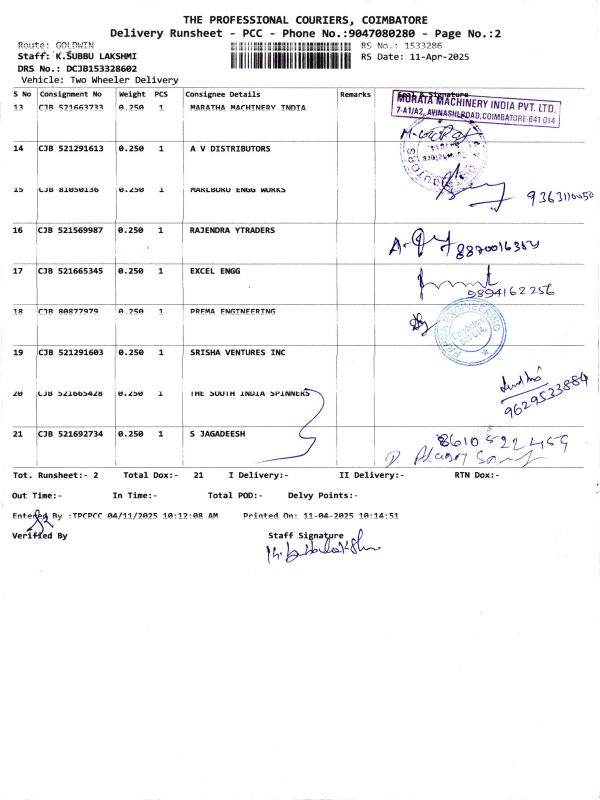 THE PROFESSIONAL COURIERS, COIMBATORE
Delivery Runsheet - PCC - Phone No.:9047080280 - Page No.:2
Route: GOLDWIN RS No.: 1533286
Staff: K.SUBBU LAKSHMI RS Date: 11-Apr-2025
DRS No.: DCJB153328602
Vehicle: Two Wheeler Delivery
S No Consignment No Weight PCS Consignee Details Remarks Seal & Signature
13 CJB 521663733 0.250 1 MARATHA MACHINERY INDIA
MURATA MACHINERY INDIA PVT. LTD.
7-A1/A2, AVINASHI ROAD, COIMBATORE-641 014
14 CJB 521291613 0.250 1 A V DISTRIBUTORS
15 CJB 81050136 0.250 1 MARLBORO ENGG WORKS 9363110050
16 CJB 521569987 0.250 1 RAJENDRA YTRADERS
17 CJB 521665345 0.250 1 EXCEL ENGG
9894162256
18 CJB 80877979 0.250 1 PREMA ENGINEERING
PREMA ENGINEERING
Coimbatore
641 014.
19 CJB 521291603 0.250 1 SRISHA VENTURES INC
20 CJB 521665428 0.250 1 THE SOUTH INDIA SPINNERS
9629533884
21 CJB 521692734 0.250 1 S JAGADEESH 8610522459
Tot. Runsheet:- 2 Total Dox:- 21 I Delivery:- II Delivery:- RTN Dox:-
Out Time:- In Time:- Total POD:- Delvy Points:-
Entered By :TPCPCC 04/11/2025 10:12:08 AM Printed On: 11-04-2025 10:14:51
Verified By Staff Signature